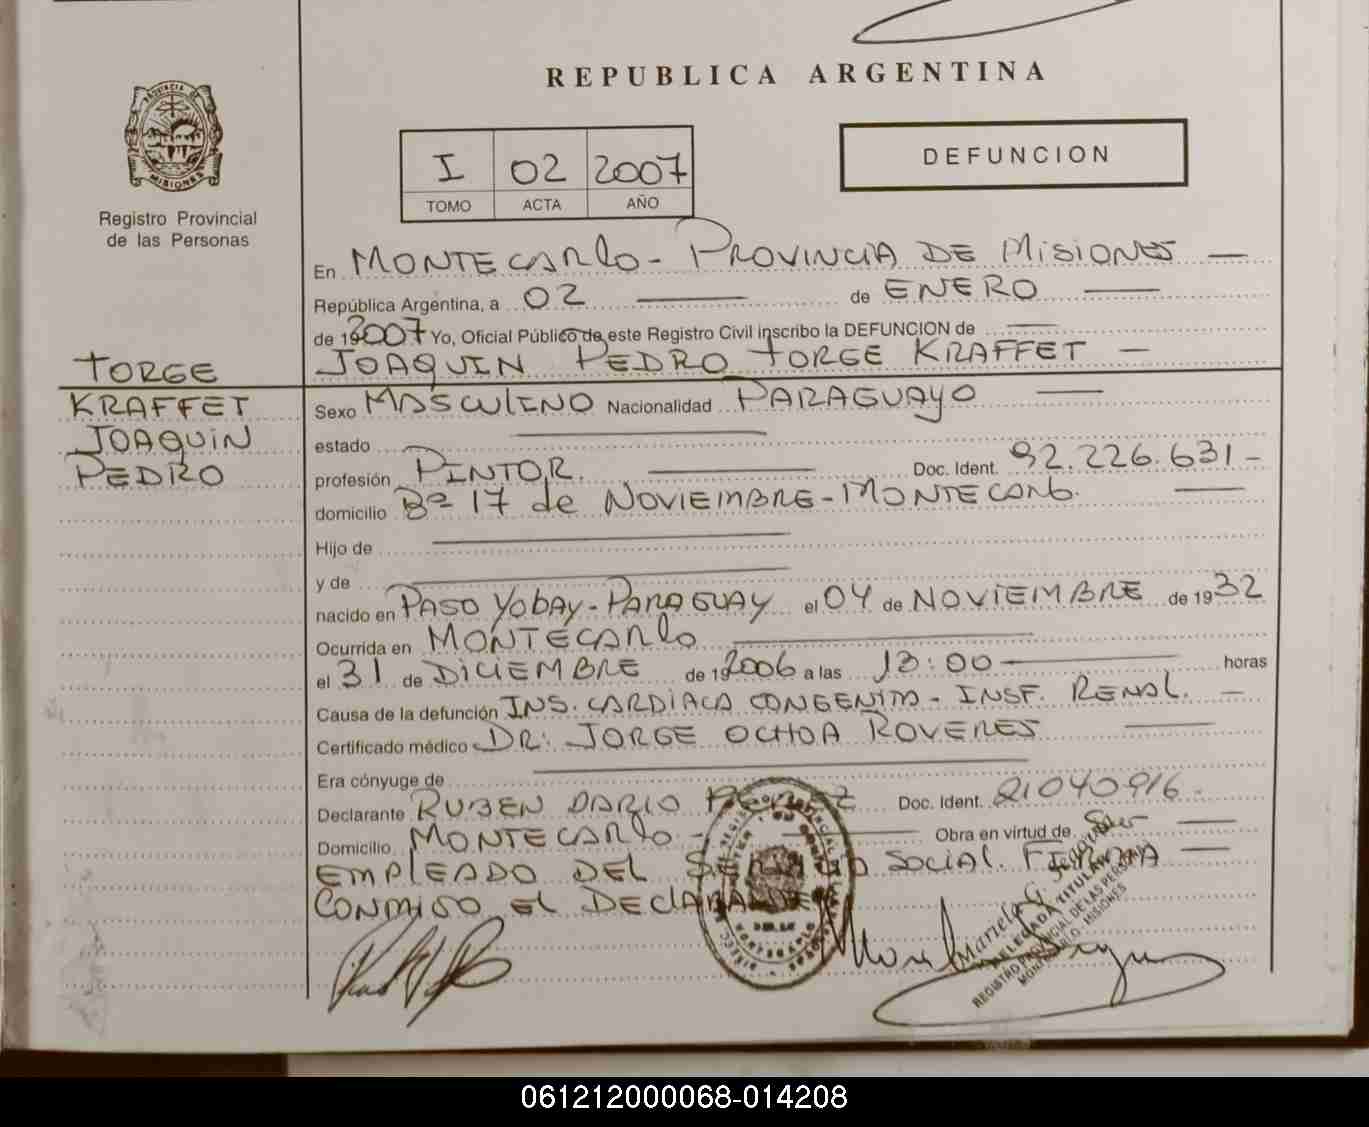 REPUBLICA ARGENTINA
PROVINCIA DE
MISIONES
Registro Provincial
de las Personas
I 02 2007
TOMO ACTA AÑO
DEFUNCION
En MONTECARLO - PROVINCIA DE MISIONES —
República Argentina, a 02 — de ENERO —
de 19 2007 Yo, Oficial Público de este Registro Civil inscribo la DEFUNCION de —
JOAQUIN PEDRO TORGE KRAFFET —
TORGE
KRAFFET
JOAQUIN
PEDRO
Sexo MASCULINO Nacionalidad PARAGUAYO —
estado —
profesión PINTOR. — Doc. Ident. 92.226.631 -
domicilio Bº 17 de NOVIEMBRE - MONTECARLO. —
Hijo de —
y de —
nacido en PASO YOBAY - PARAGUAY el 04 de NOVIEMBRE de 19 32
Ocurrida en MONTECARLO —
el 31 de DICIEMBRE de 19 2006 a las 13:00 — horas
Causa de la defunción INS. CARDIACA CONGENITA - INSF. RENAL. —
Certificado médico DR: JORGE OCHOA ROVERES —
Era cónyuge de —
Declarante RUBEN DARIO Doc. Ident. 21040916 -
Domicilio MONTECARLO - — Obra en virtud de Ser —
EMPLEADO DEL SERVICIO SOCIAL. FIRMA —
CONMIGO EL DECLARANTE
Mariela G.
DELEGADA TITULAR
REGISTRO PROVINCIAL DE LAS PERSONAS
MONTECARLO - MISIONES
061212000068-014208